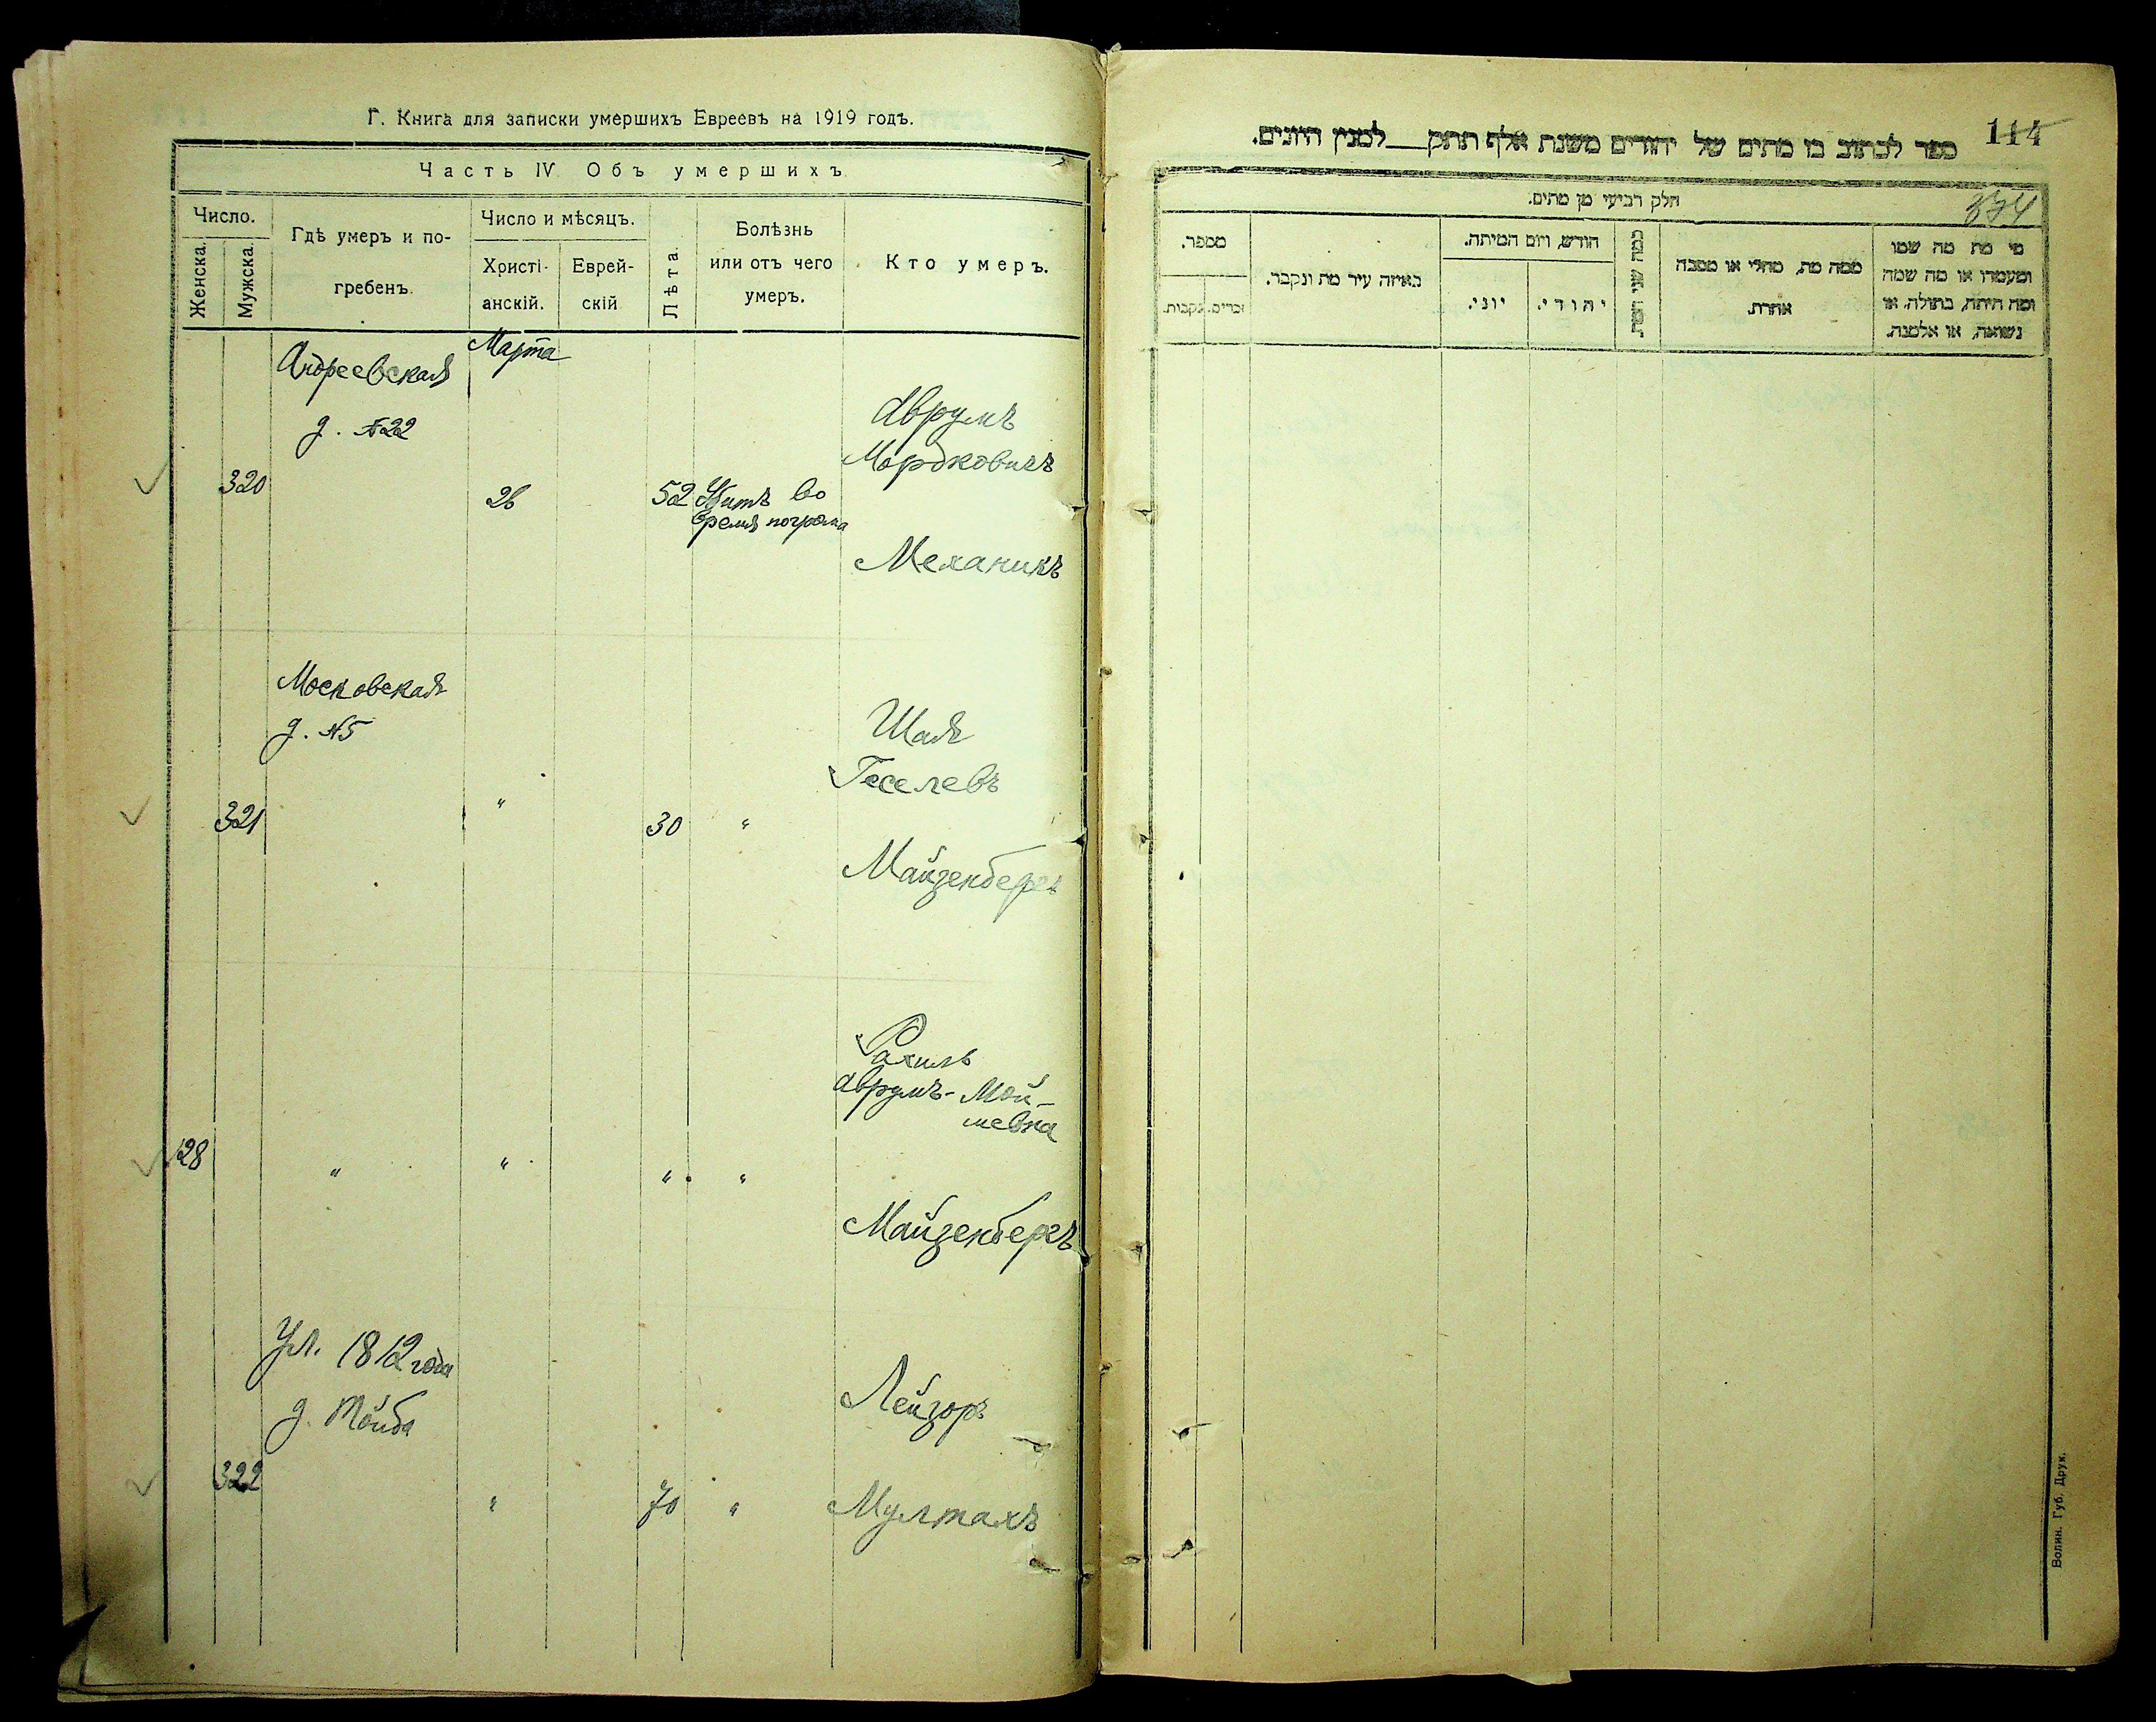 Г. Книга для записки умершихъ Евреевъ на 1919 годъ.
Часть IV Объ умершихъ.
Число.
Женска.
Мужска.
Гдѣ умеръ и по-
гребенъ.
Число и мѣсяцъ.
Христі-
анскій.
Еврей-
скій
Лѣта.
Болѣзнь
или отъ чего
умеръ.
Кто умеръ.
Андреевская
Марта
д. №22
Аврумъ
Мордковичъ
320
26
52
Убитъ во
время погрома
Механикъ
Московская
д. №5
Шая
Геселевъ
321
"
30
"
Майзенбергъ
Рахиль
Аврумъ-Мой-
шевна
128
"
"
"
"
Майзенбергъ
Ул. 1812 года
д.
Лейзоръ
322
"
70
"
114
ספר לכתוב בו מתים של יהודים משנת אלף תתק__למנין היונים.
חלק רביעי מן מתים.
334
מי מת מה שמו
ומעמדו או מה שמה
ומה היתה, בתולה, או
נשואה, או אלמנה.
ממה מת, מחלי או מסבה
אחרת.
כמה שני
חודש, ויום המיתה.
יהודי.
יוני.
באיזה עיר מת ונקבר.
מספר.
זכרים.
נקבות.
Волин. Губ. Друк.